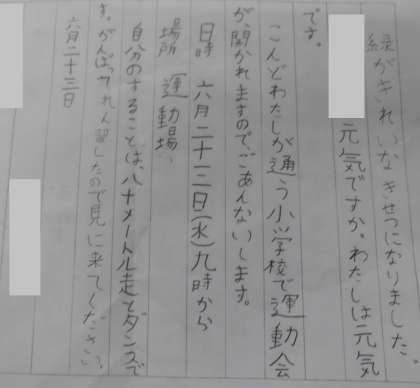 緑がきれいなきせつになりました。
元気ですか。わたしは元気
です。
こんどわたしが通う小学校で運動会
が、開かれますので、ごあんないします。
日時 六月二十三日(水)九時から
場所 運動場、
自分のすることは、八十メートル走とダンスで
す。がんばってれん習したので見に来てください。
六月二十三日